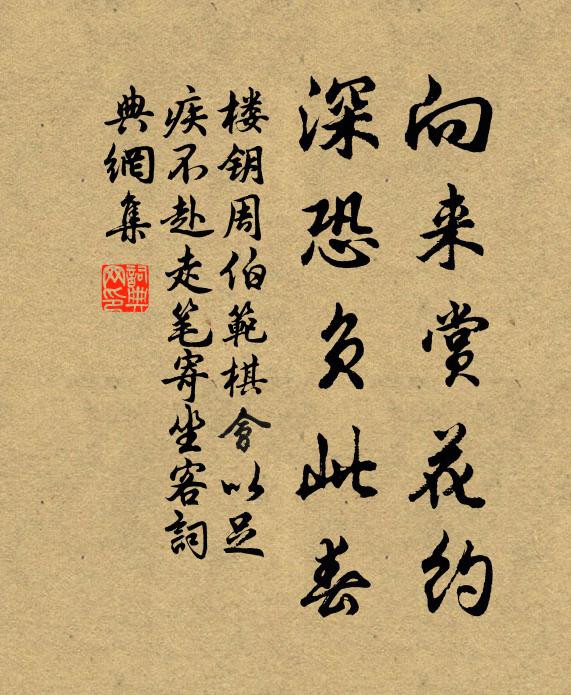 向来赏花约
深恐负此春
楼钥周伯範棋會以足
疾不赴走笔寄坐客詞
典網集
詞典网印